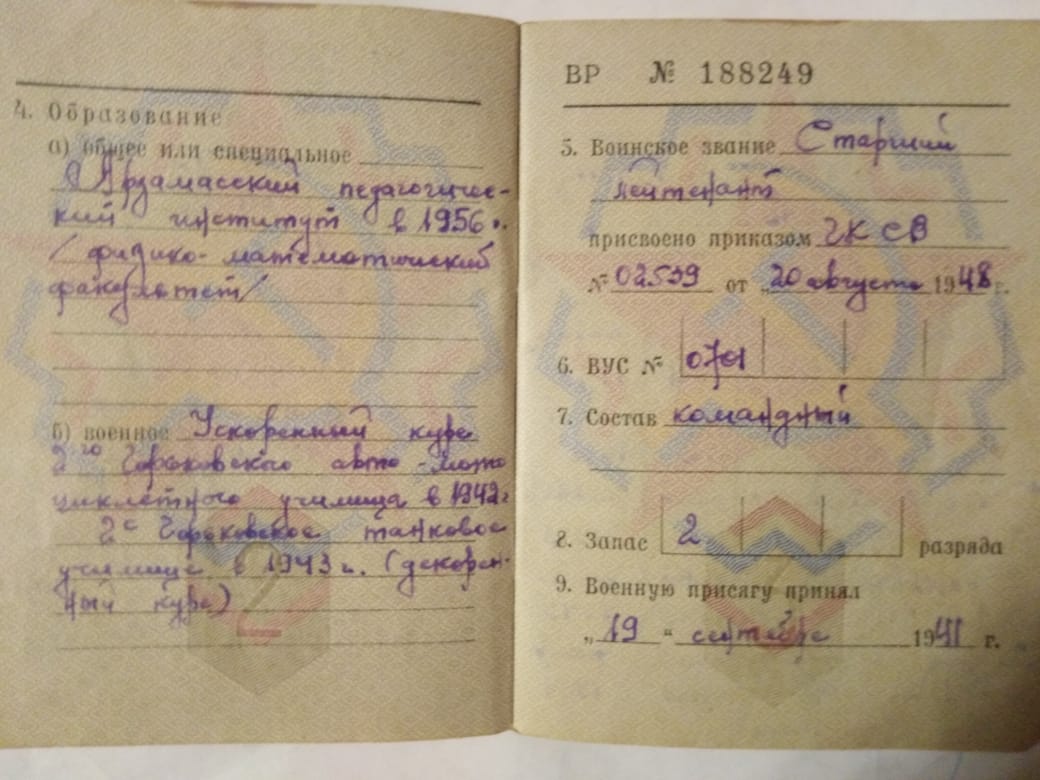 4. Образование
а) общее или специальное
Арзамасский педагогичес-
кий институт в 1956г.
/ физико-математический
факультет/
б) военное Ускоренный курс
2го Горьковского авто-мото
циклетного училища в 1942г
2е Горьковское танковое
училище в 1943 г. (ускорен-
ный курс)
ВР № 188249
5. Воинское звание Старший
лейтенант
присвоено приказом ГК СВ
№ 02539 от „20 августа 1948 г.
6. ВУС № 0701
7. Состав командный
8. Запас 2 разряда
9. Военную присягу принял
„19“ сентября 1941 г.